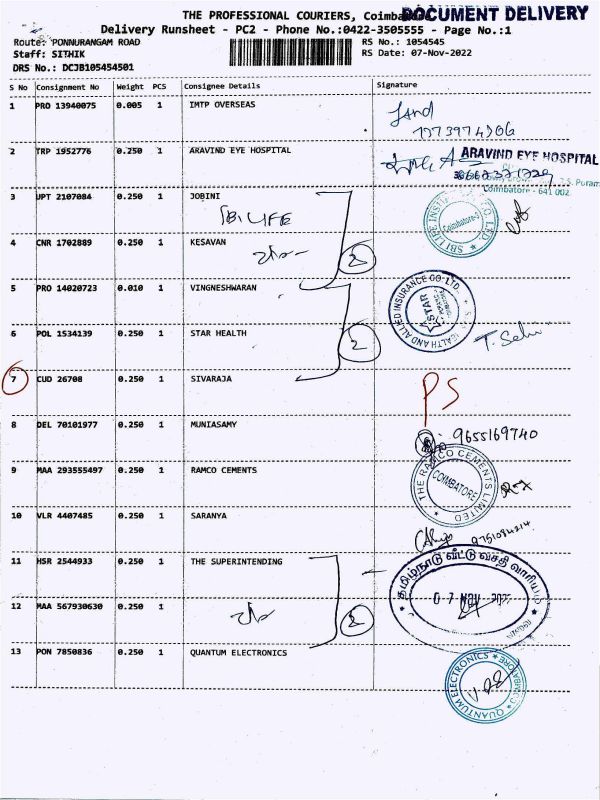 THE PROFESSIONAL COURIERS, Coimba
DOCUMENT DELIVERY
Delivery Runsheet - PC2 - Phone No.:0422-3505555 - Page No.:1
Route: PONNURANGAM ROAD
RS No.: 1054545
Staff: SITHIK
RS Date: 07-Nov-2022
DRS No.: DCJB105454501
S No Consignment No Weight PCS Consignee Details Signature
1 PRO 13940075 0.005 1 IMTP OVERSEAS
2 TRP 1952776 0.250 1 ARAVIND EYE HOSPITAL
ARAVIND EYE HOSPITAL
Coimbatore - 641 002
3 UPT 2107084 0.250 1 JOBINI
SBI LIFE
SBI LIFE INSURANCE CO. LTD
Coimbatore-2
4 CNR 1702889 0.250 1 KESAVAN
2
5 PRO 14020723 0.010 1 VINGNESHWARAN
STAR HEALTH AND ALLIED INSURANCE CO. LTD.
STAR
6 POL 1534139 0.250 1 STAR HEALTH
2
7 CUD 26708 0.250 1 SIVARAJA
PS
8 DEL 70101977 0.250 1 MUNIASAMY
9655169740
9 MAA 293555497 0.250 1 RAMCO CEMENTS
THE RAMCO CEMENTS LIMITED
COIMBATORE
10 VLR 4407485 0.250 1 SARANYA
11 HSR 2544933 0.250 1 THE SUPERINTENDING
தமிழ்நாடு வீட்டு வசதி வாரியம்
07 NOV 202
12 MAA 567930630 0.250 1
2
13 PON 7850836 0.250 1 QUANTUM ELECTRONICS
QUANTUM ELECTRONICS